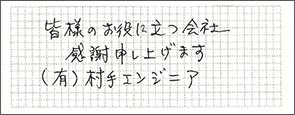 皆様のお役に立つ会社
感謝申し上げます
(有)村手エンジニア